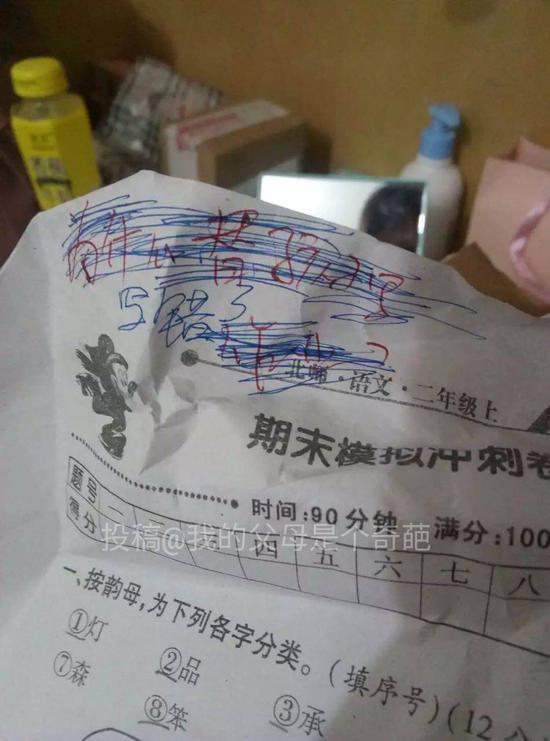 写错了
北师·语文·二年级上
期末模拟冲刺卷
时间:90分钟 满分:100
题号 一 四 五 六 七 八
得分
投稿@我的父母是个奇葩
一、按韵母,为下列各字分类。(填序号)(12分
①灯 ②品 ③承
⑦森 ⑧笨